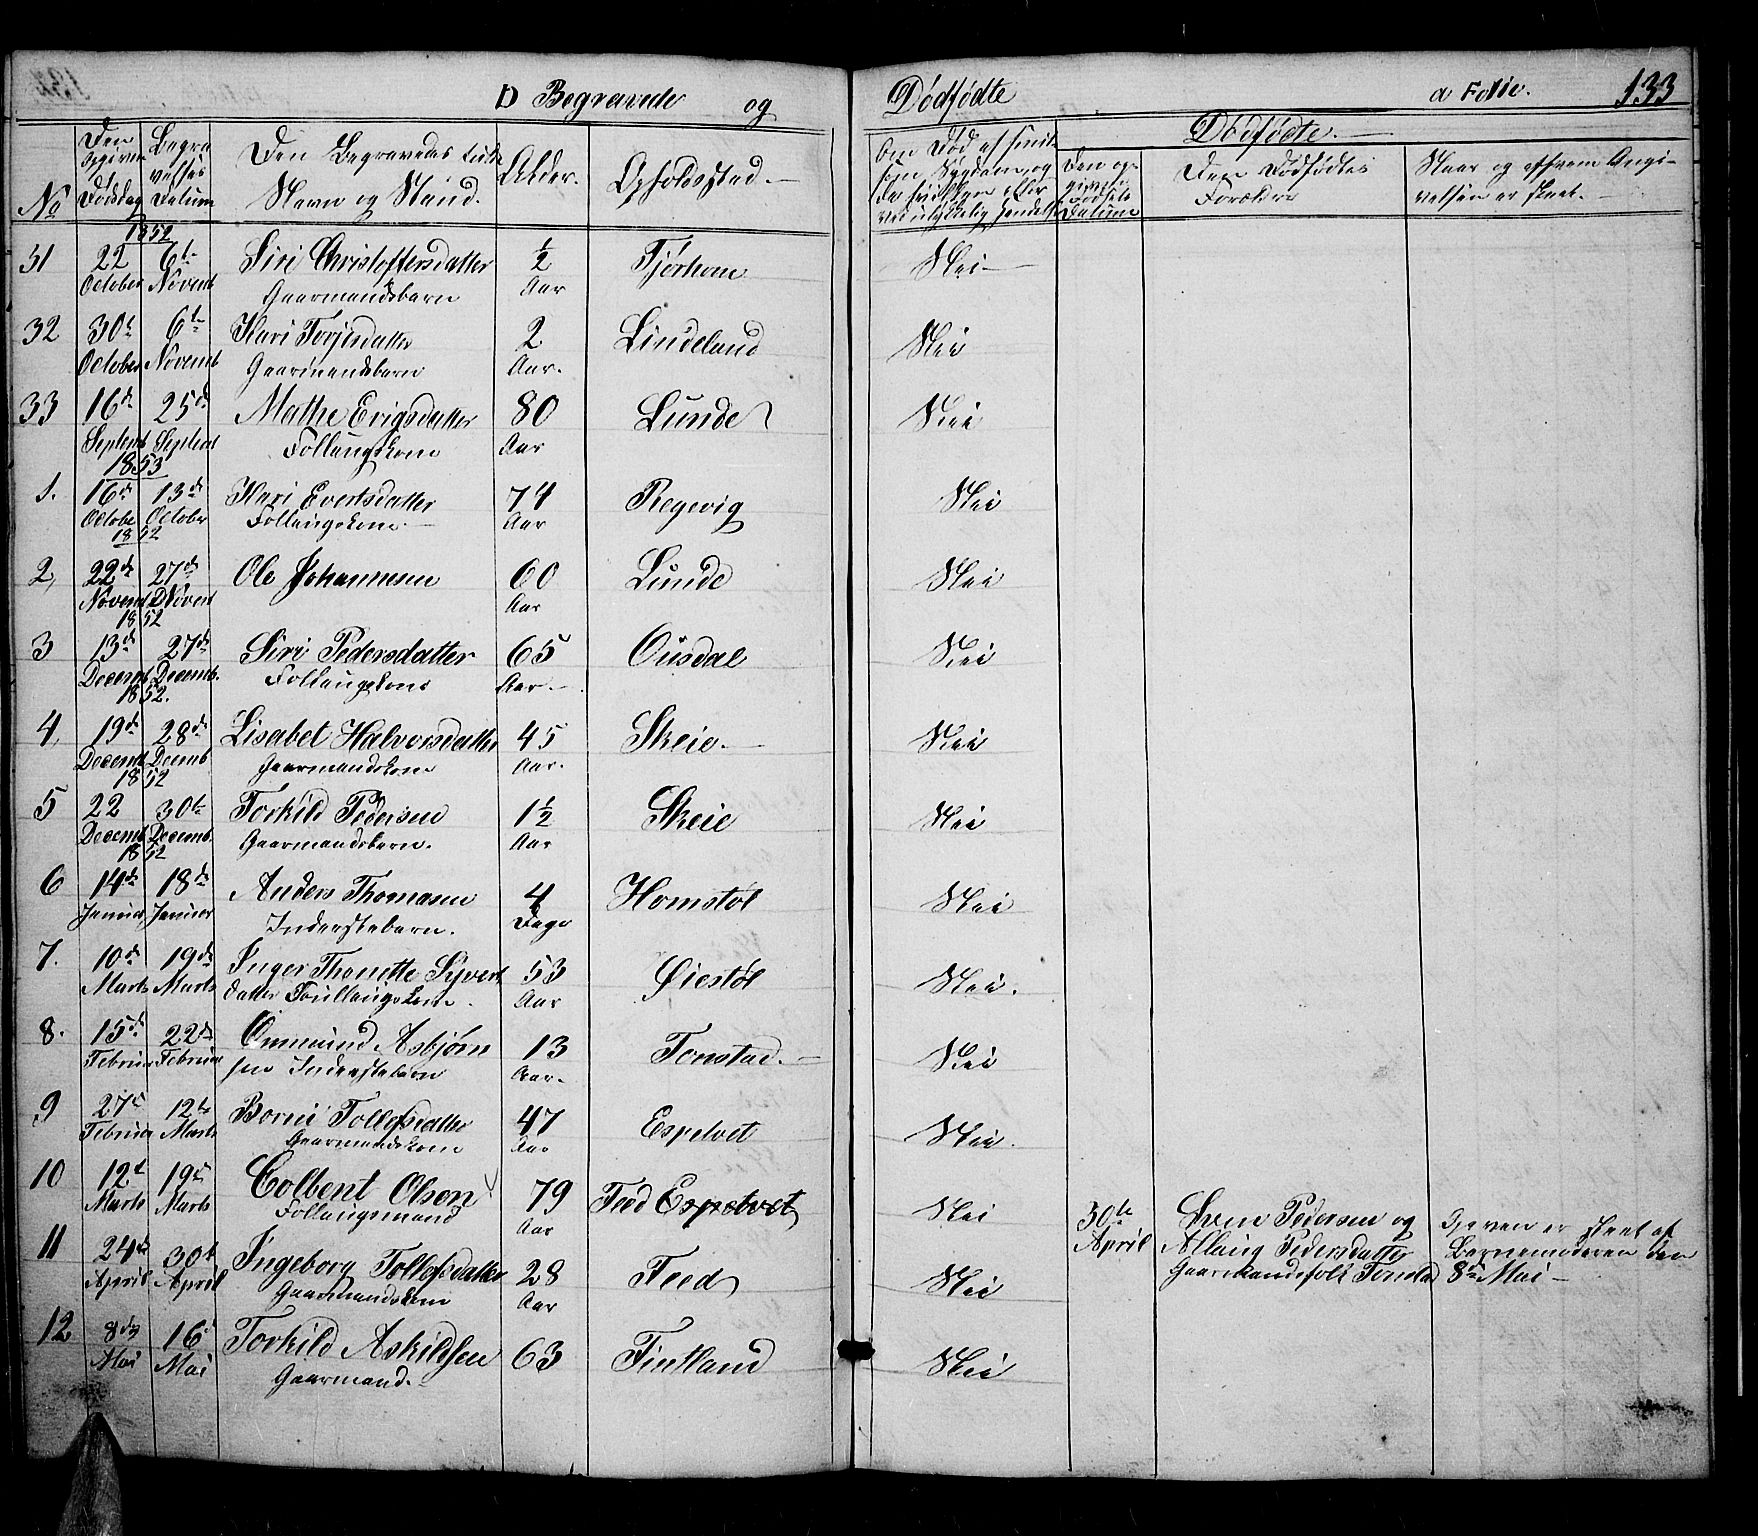 D Begravede og Dødfødte a Folie. 133
No
Den opgivne Dødsdag
Begravelses Datum
Den Begravedes fulde Navn og Stand.
Alder.
Opholdssted.
Om Død af smitsom Sygdom, og
ved ulykkelig Hendelse
Dødfødte.
Den opgivne Fødsels Datum
Den Dødfødtes Forældre
Naar og af hvem Angivelsen er skeet.
1852
31 22 October 6te Novemb Siri Christoffersdatter Gaarmandsbarn ½ Aar Tjørhom Nei
32 30te October 6te Novemb Kari Torjisdatter Gaarmandsbarn 2 Aar. Lindeland Nei
33 16de Septemb 25de Septemb Mathe Erigsdatter Follaugskone 80 Aar Lunde Nei
1853
1. 16de Octobe 13de October Kari Evertsdatter Follaugskone. 74 Aar Regevig Nei
1852
2, 22de Novemb 27de Novem Ole Johannesen 60 Aar Lunde Nei
1852
3 13de Decemb 27de Decemb. Siri Pedersdatter Follaugskone 65 Aar. Ousdal Nei
1852.
4, 19de Decemb 28de Decemb Lisabet Halvorsdatter Gaarmandskone 45 Aar. Skeie. Nei
1852
5 22 Decemb 30te Decemb. Torkild Pedersen Gaarmandsbarn. 1½ Aar Skeie Nei
1852
6 14de Januar 18de Januar Anders Thomasen Inderstebarn. 4 Dage Homstøl Nei
7. 10de Marts 19de Marts Inger Thonette Syvertsdatter Foullaugskone. 53 Aar Øiestøl Nei.
8. 15de Februar 22de Februar Ommund Asbjørnsen Inderstebarn 13 Aar. Tonstad. Nei
9 27de Februar 12te Marts Borni Tollefsdatter Gaarmandskone 47 Aar Espetvet Nei.
10 12te Marts 19de Marts Colbent Olsen Follaugsmand 79 Aar Feed Espetvet Nei
30te April Sven Pedersen og Allaug Pedersdatter Gaarmandsfolk Tonstad
er skeet af Barnemoderen den 8de Mai
11 24de April 30te April Ingeborg Tollefsdatter Gaarmandskone 28 Aar Feed Nei
12 8de Mai 16de Mai Torkild Askildsen Gaarmand. 63 Fintland Nei